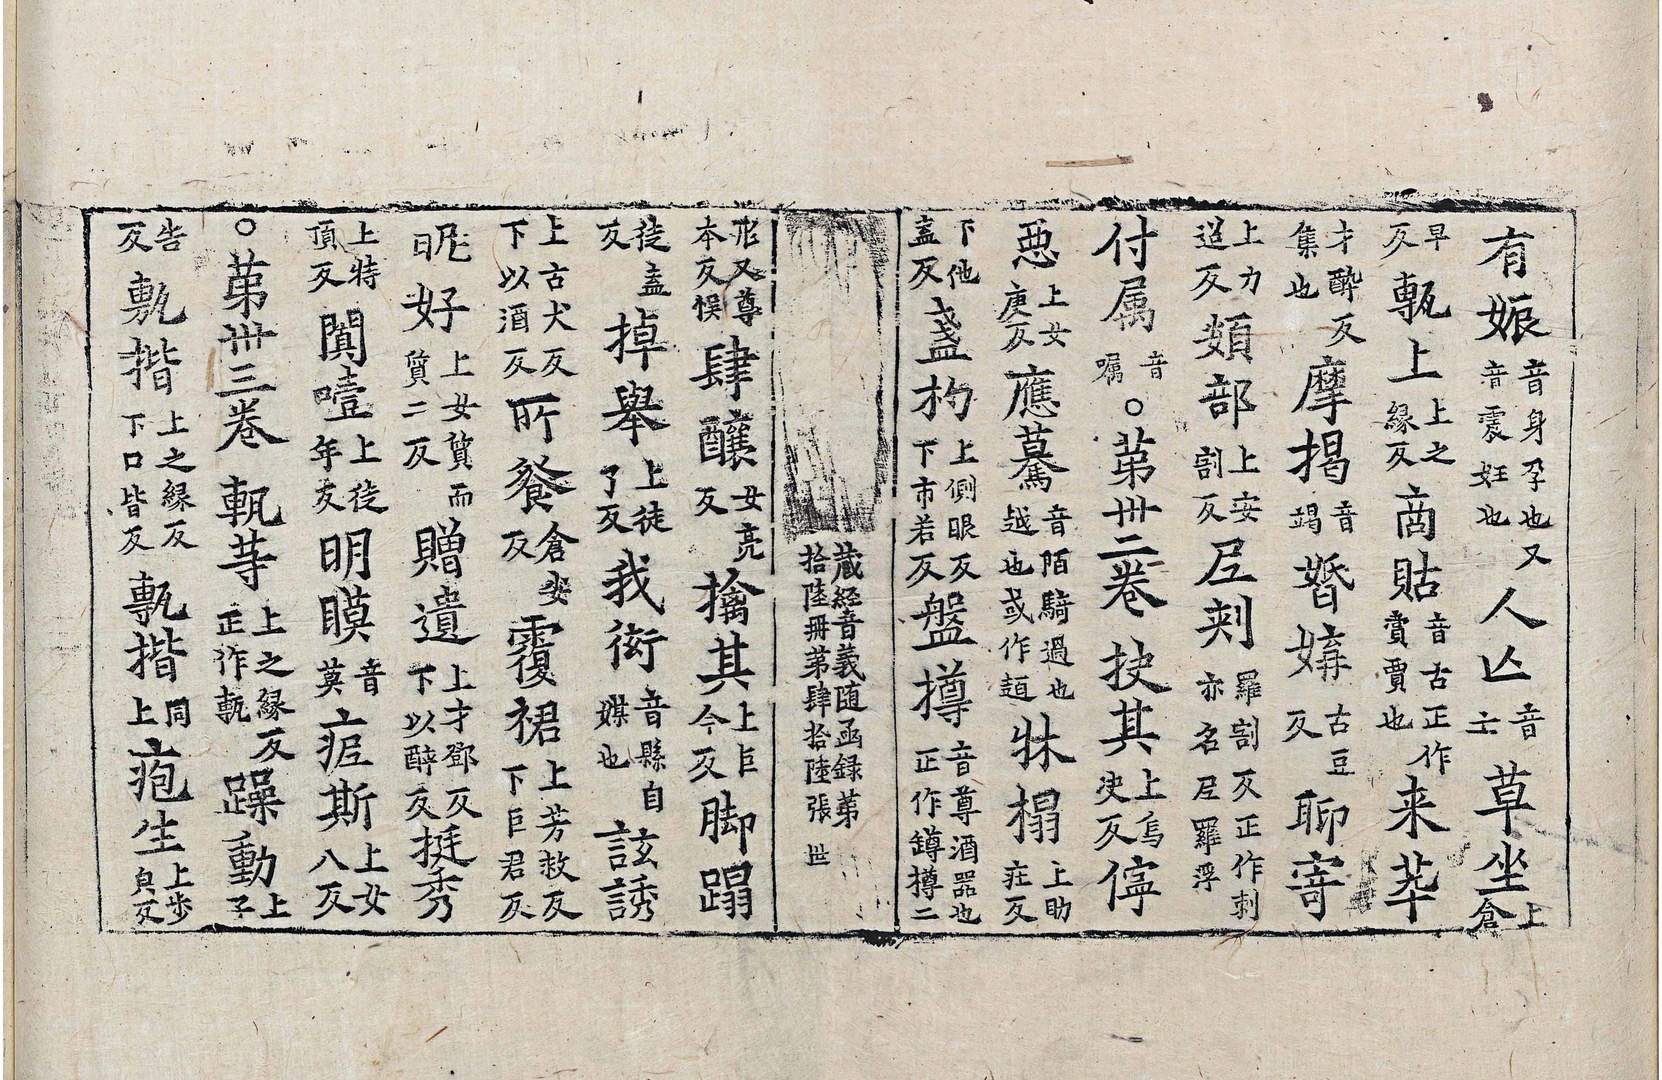 有娠音身孕也又音震妊也人亾音亡草坐上倉
早反甎上上之縁反啇貼音古正作賣賈也来葬
才醉反集也摩揭音竭婚媾古豆反聊寄
上力迢反頞部上安割反𡰱刾羅割反正作剌亦名𡰱羅浮
付属音嘱○苐卅二卷抉其上烏決反儜
𢙣上女庚反應驀音陌騎過也越也或作趏牀榻上助庄反
下他盍反盞杓上側眼反下市若反盤撙音尊酒器也正作罇樽二
藏經音義随函録苐拾陸冊苐肆拾陸張 世
形又尊本反悮肆釀女亮反擒其上巨今反脚蹋
徒盍反掉舉上徒了反我衒音縣自媒也誸誘
上古犬反下以酒反所飡倉安反覆裙上芳救反下巨君反
昵好上女質而質二反贈遺上才鄧反下以醉反挺秀
上特頂反闐噎上徒年反明瞙音莫痆斯上女八反
○苐卅三卷甎䓁上之縁反正作甎躁動上子
告反甎揩上之縁反下口皆反甎揩同上疱生上步皃反